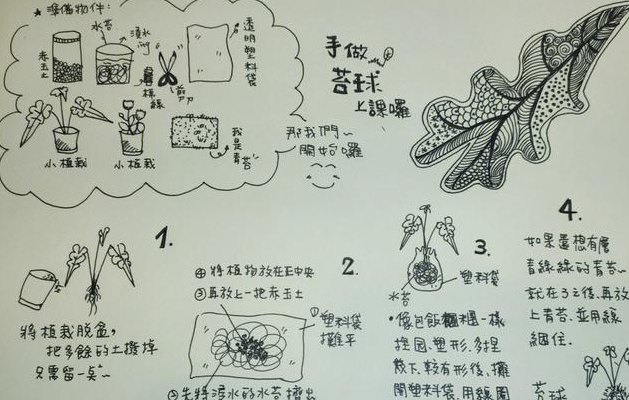 ★ 準備物件:
水苔
浸水
赤玉土
棉線
剪刀
透明塑料袋
小植栽
小植栽
我是青苔
手做
苔球
上課囉
那我們~
開始囉
1.
將植栽脫盆,
把多餘的土撥掉
只需留一點~
2.
④將植物放在正中央
③再放上一把赤玉土
①塑料袋
攤平
②先將浸水的水苔擠出
3.
塑料袋
水苔
·像包飯糰一樣
捏圓、塑形、多捏
幾下、較有形後、攤
開塑料袋、用線圈
4.
如果還想有層
青綠綠的青苔~
就在3之後、再放
上青苔、並用線
綑住.
苔球